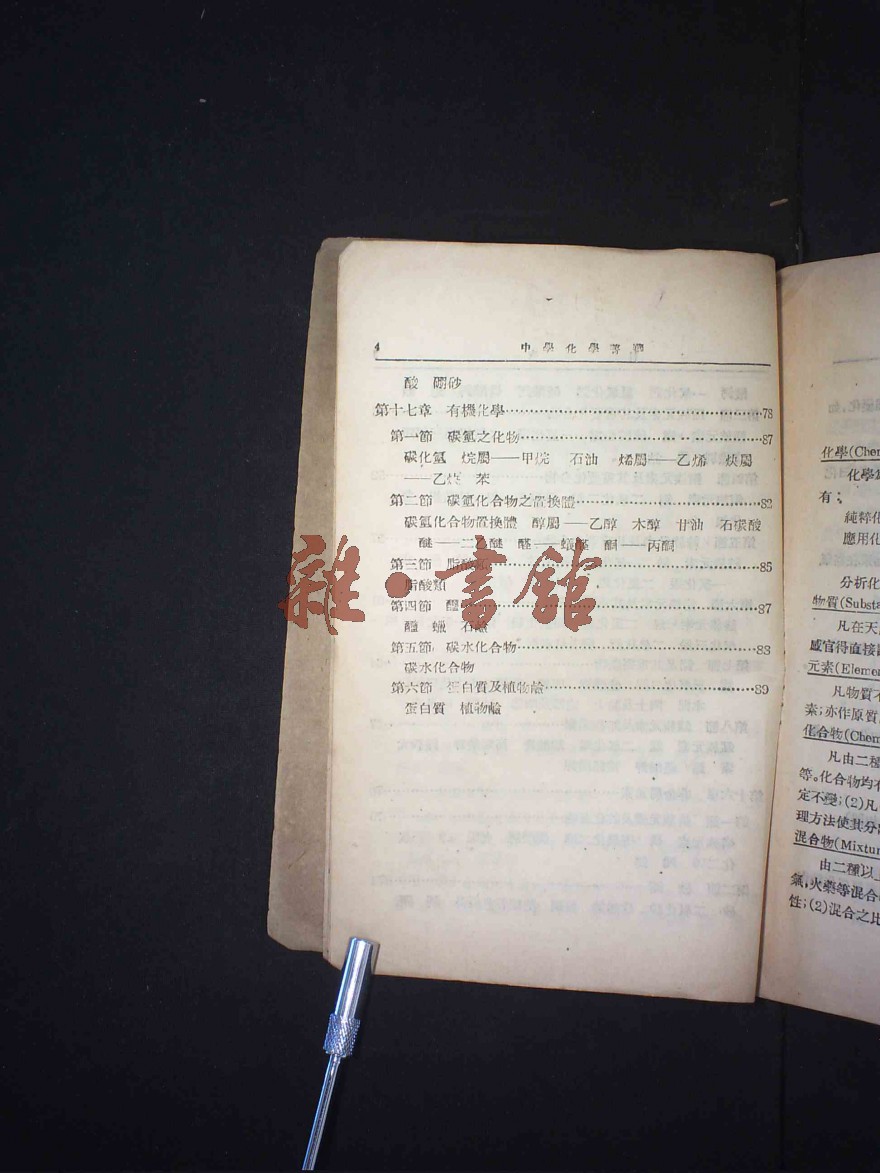 4
中學化學
酸 硼砂
第十七章 有機化學……78
第一節 碳氫之化物……87
碳化氫 烷屬——甲烷 石油 烯屬——乙烯 炔屬
——乙炔 苯
第二節 碳氫化合物之置換體……82
碳氫化合物置換體 醇屬——乙醇 木醇 甘油 石碳酸
醚——二乙醚 醛——蟻醛 酮——丙酮
第三節 脂酸類……85
脂酸類
第四節……87
蠟 石鹼
第五節 碳水化合物……88
碳水化合物
第六節 蛋白質及植物鹼……89
蛋白質 植物鹼
雜·書館
化學(Chem
化學
有:
純粹化
應用化
分析化
物質(Substa
凡在天
感官得直接
元素(Elemen
凡物質不
素;亦作原質
化合物(Chem
凡由二種
等。化合物均有
定不變;(2)凡
理方法使其分
混合物(Mixtur
由二種以上
氣,火藥等混合
性;(2)混合之比